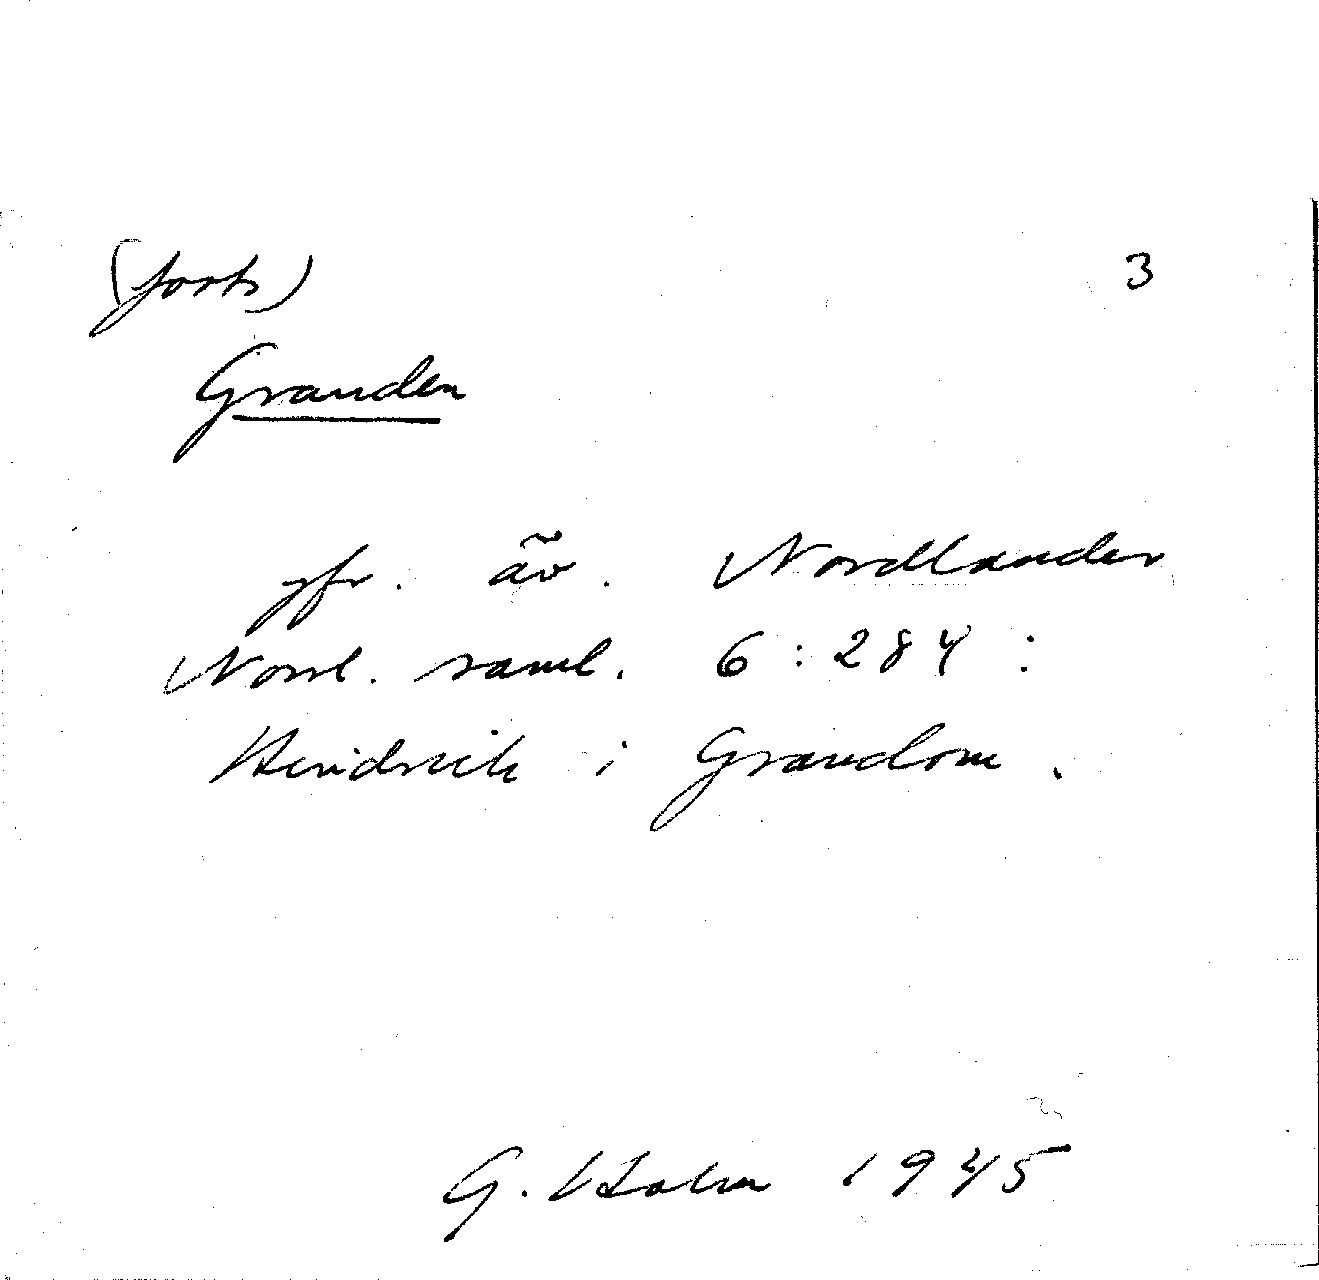 (forts) 3
Granden
jfr. äv. Nordlander
Norrl. saml. 6:284:
Hindrich i Grandom.
G. Holm 1945